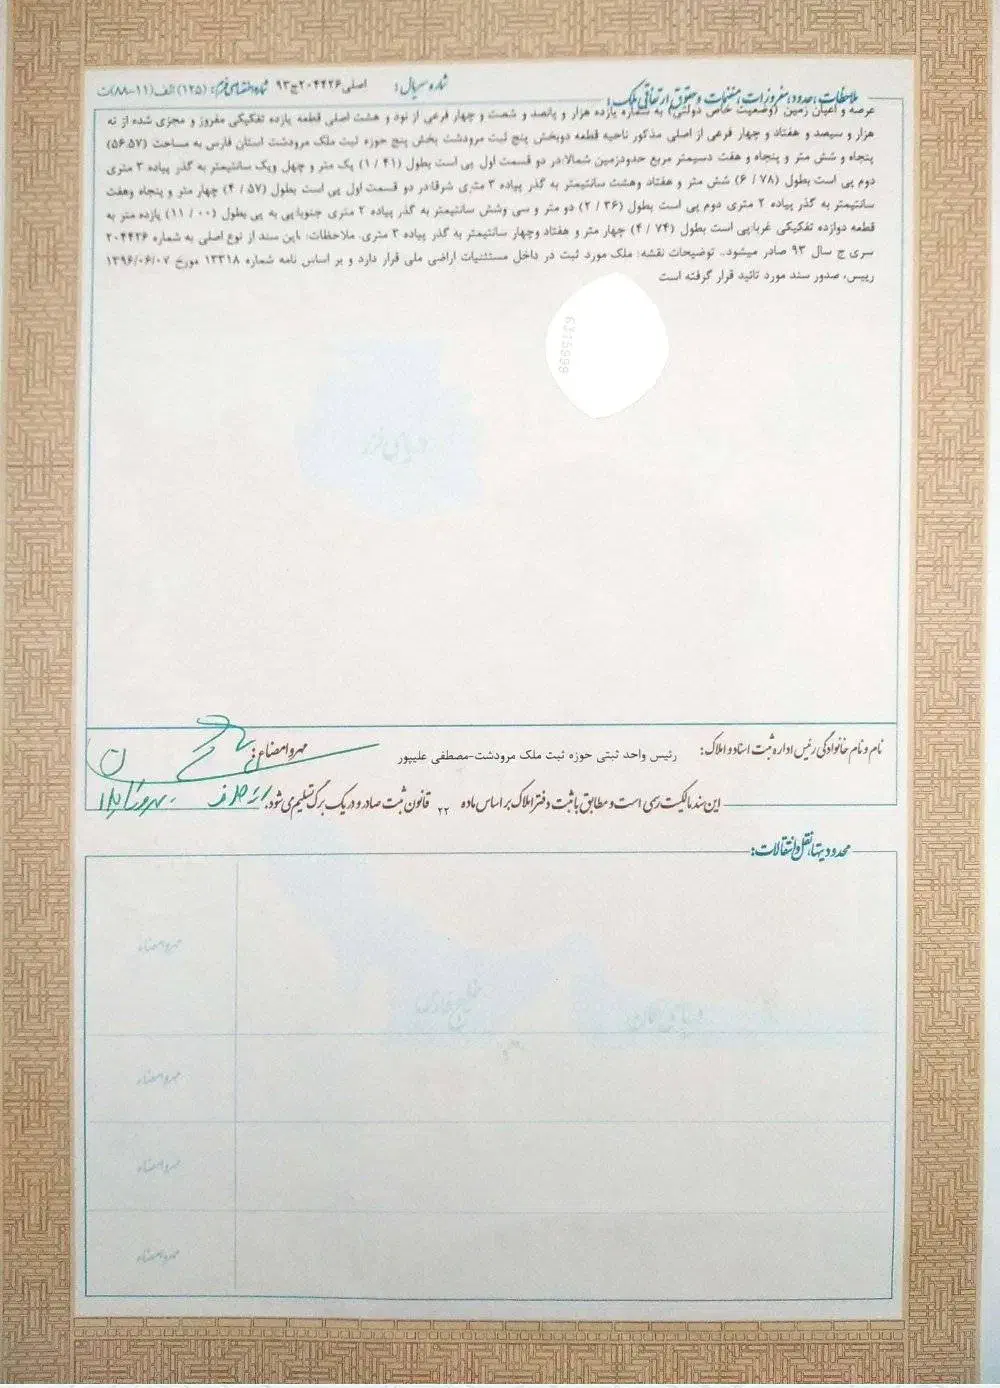 شماره سریال: اصلی ۲۰۴۴۲۶ج۹۳ شماره اختصاصی فرم: (۱۲۵) الف (۱۱-۸۸)ت
ملاحظات، حدود، مفروزات، منضمات و حقوق ارتفاقی ملک:
عرصه و اعیان زمین (وضعیت خاص دولتی) به شماره یازده هزار و پانصد و شصت و چهار فرعی از نود و هشت اصلی قطعه یازده تفکیکی مفروز و مجزی شده از نه
هزار و سیصد و هفتاد و چهار فرعی از اصلی مذکور ناحیه قطعه دوبخش پنج ثبت مرودشت بخش پنج حوزه ثبت ملک مرودشت استان فارس به مساحت (۵۶.۵۷)
پنجاه و شش متر و پنجاه و هفت دسیمتر مربع حدودزمین شمالا:در دو قسمت اول پی است بطول (۴۱ / ۱) یک متر و چهل ویک سانتیمتر به گذر پیاده ۳ متری
دوم پی است بطول (۷۸ / ۶) شش متر و هفتاد وهشت سانتیمتر به گذر پیاده ۳ متری شرقا:در دو قسمت اول پی است بطول (۵۷ / ۴) چهار متر و پنجاه وهفت
سانتیمتر به گذر پیاده ۲ متری دوم پی است بطول (۳۶ / ۲) دو متر و سی وشش سانتیمتر به گذر پیاده ۲ متری جنوبا:پی به پی بطول (۰۰ / ۱۱) یازده متر به
قطعه دوازده تفکیکی غربا:پی است بطول (۷۴ / ۴) چهار متر و هفتاد وچهار سانتیمتر به گذر پیاده ۳ متری. ملاحظات: این سند از نوع اصلی به شماره ۲۰۴۴۲۶
سری ج سال ۹۳ صادر میشود.. توضیحات نقشه: ملک مورد ثبت در داخل مستثنیات اراضی ملی قرار دارد و بر اساس نامه شماره ۱۳۳۱۸ مورخ ۱۳۹۶/۰۶/۰۷
رییس، صدور سند مورد تائید قرار گرفته است
6315998
دریای خزر
نام و نام خانوادگی رئیس اداره ثبت اسناد و املاک: رئیس واحد ثبتی حوزه ثبت ملک مرودشت-مصطفی علیپور مهر و امضاء
این سند مالکیت رسمی است و مطابق با ثبت دفتر املاک بر اساس ماده ۲۲ قانون ثبت صادر و در یک برگ تسلیم می شود.
محدودیتها، نقل و انتقالات:
مهر و امضاء
خلیج فارس
دریای عمان
مهر و امضاء
مهر و امضاء
مهر و امضاء